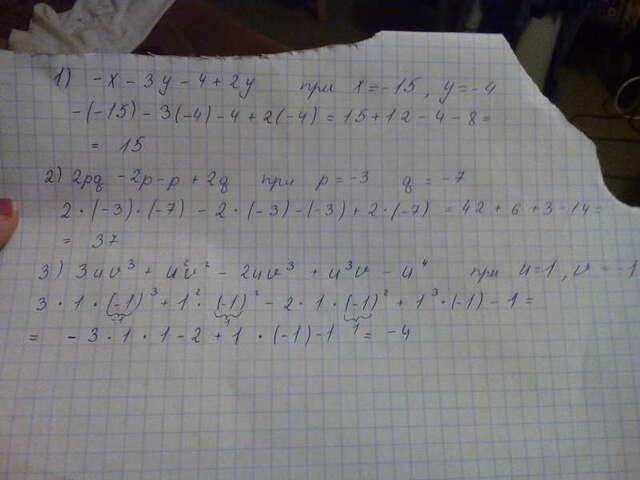 1) -x - 3y - 4 + 2y при x = -15, y = -4
-(-15) - 3(-4) - 4 + 2(-4) = 15 + 12 - 4 - 8 =
= 15
2) 2pq - 2p - p + 2q при p = -3 q = -7
2 · (-3) · (-7) - 2 · (-3) - (-3) + 2 · (-7) = 42 + 6 + 3 - 14 =
= 37
3) 3uv³ + u²v² - 2uv³ + u³v - u⁴ при u = 1, v = -1
3 · 1 · (-1)³ + 1² · (-1)² - 2 · 1 · (-1)² + 1³ · (-1) - 1 =
-1 1 1
= - 3 · 1 · 1 - 2 + 1 · (-1) - 1 = -4